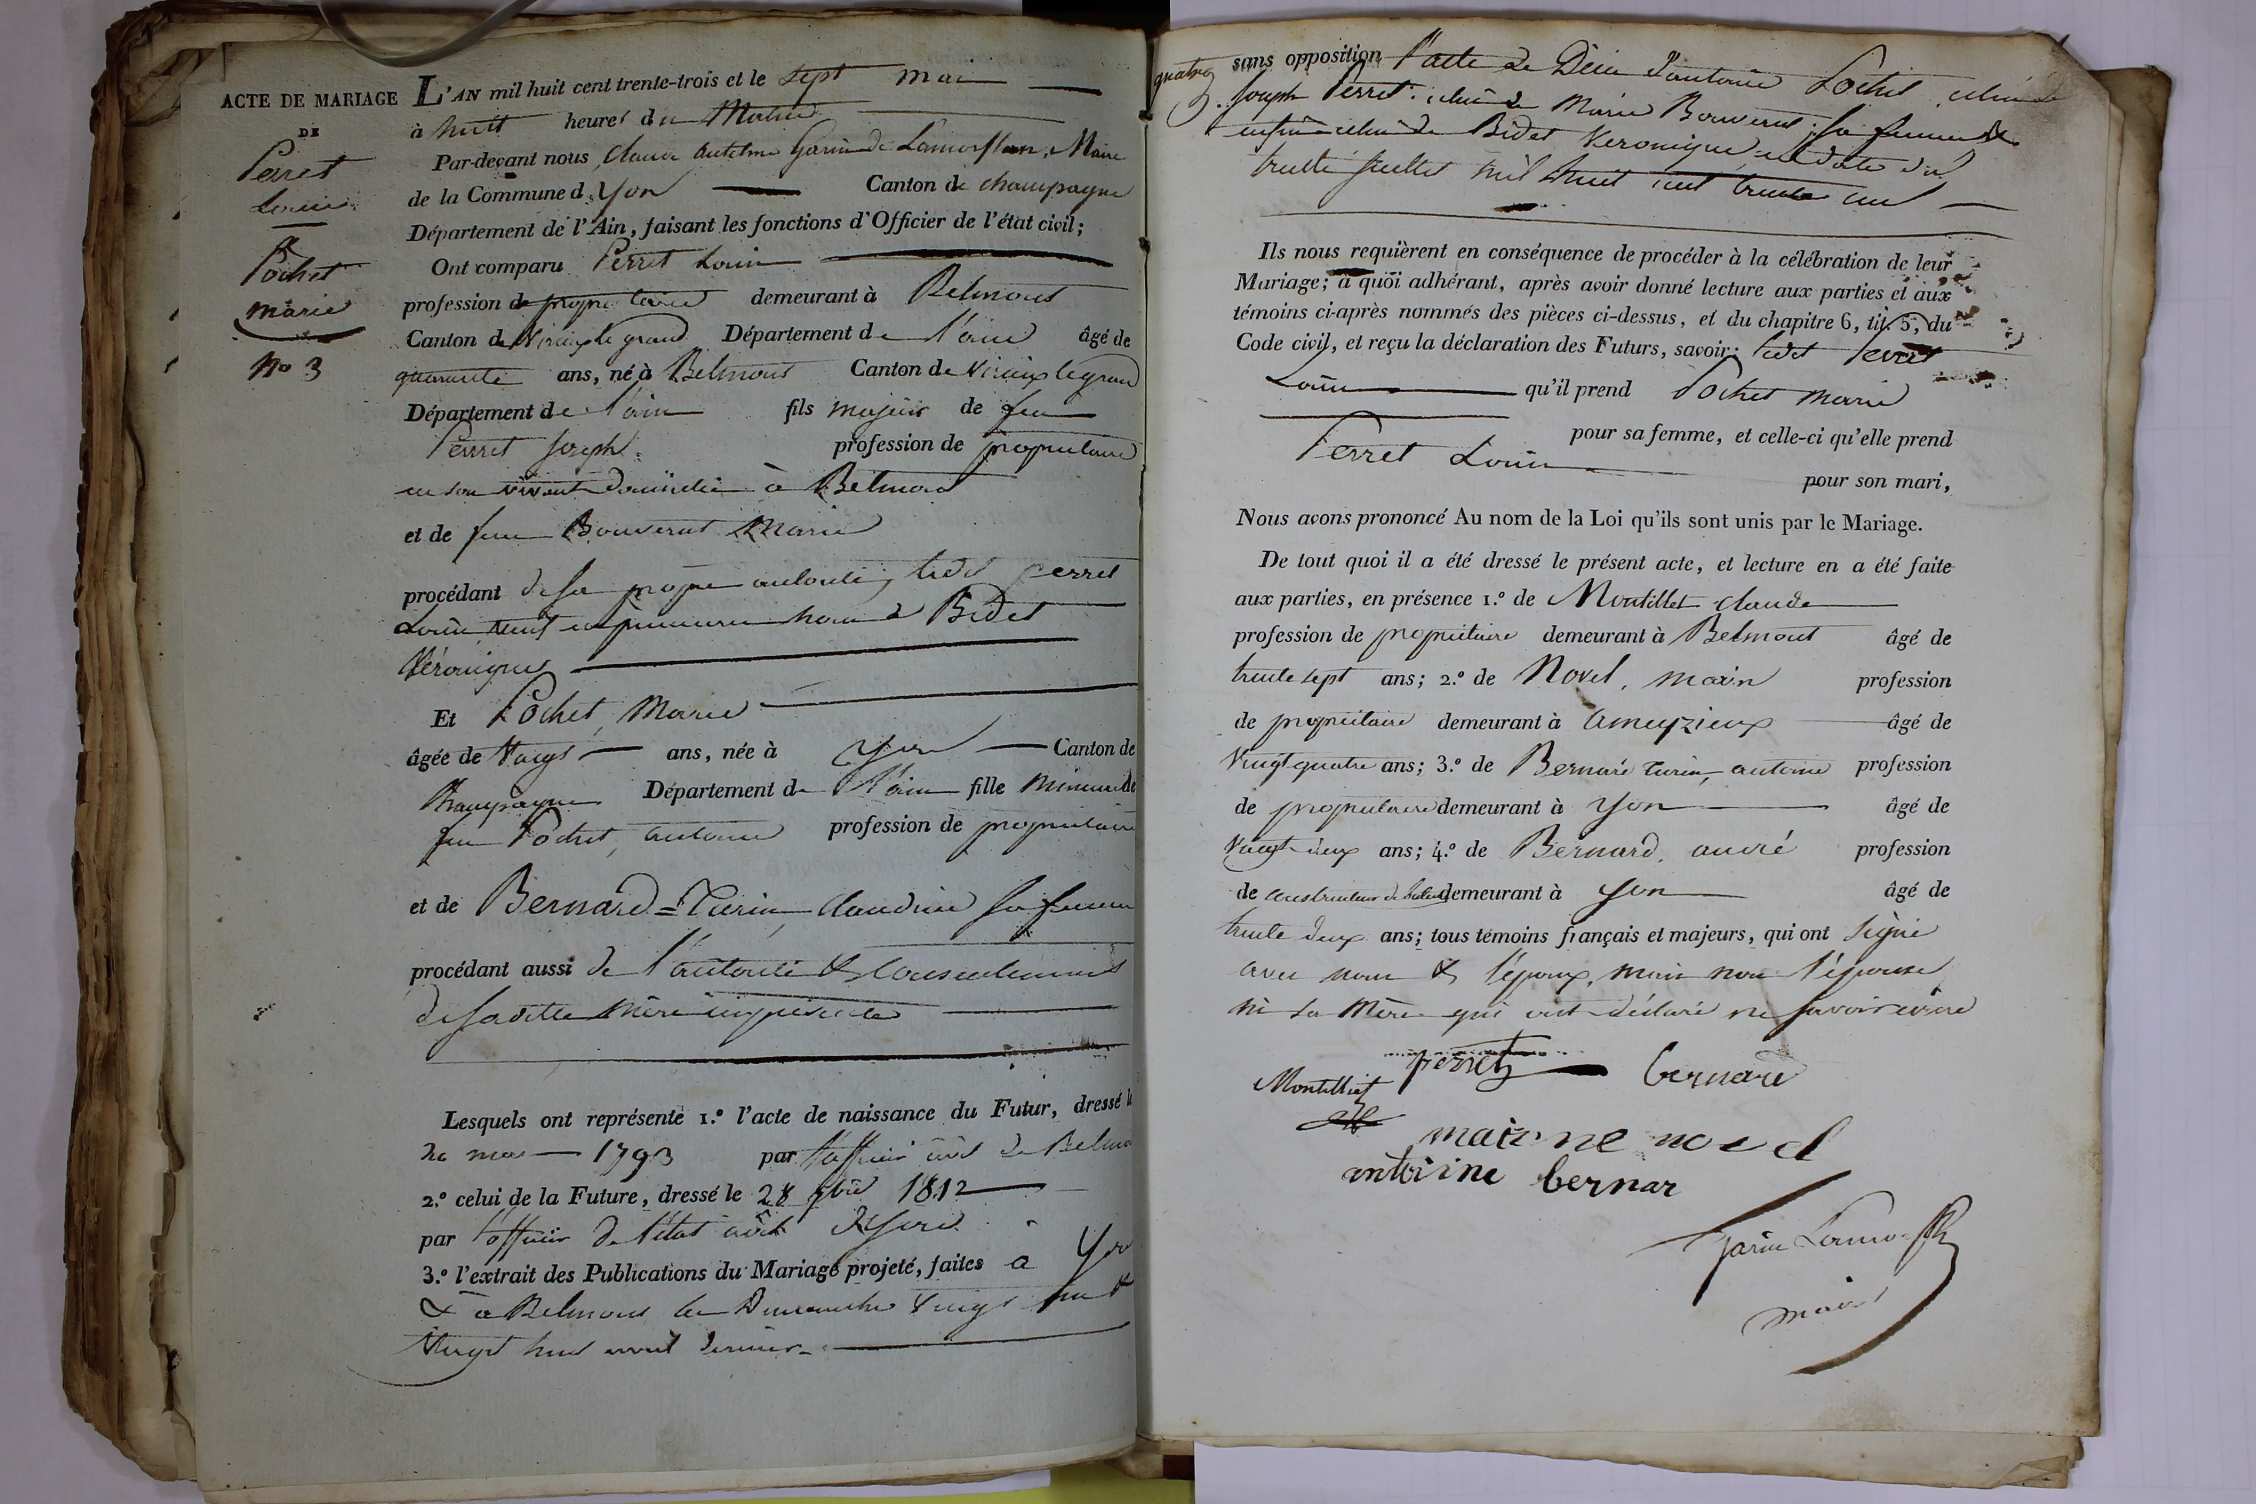 ACTE DE MARIAGE
DE
Perret
Louis
Pochet
marie
No 3
L'AN mil huit cent trente-trois et le sept mai
à huit heures du Matin
Par-devant nous, claude antelme Garin de Lamorflan, Maire
de la Commune d'yon Canton de champagne
Département de l'Ain, faisant les fonctions d'Officier de l'état civil;
Ont comparu Perret Louis
profession de propriétaire demeurant à Belmont
Canton de Virieux le grand Département de l'ain âgé de
quarante ans, né à Belmont Canton de Virieux le grand
Département de l'ain fils majeur de feu
Perret Joseph profession de propriétaire
en son vivant domicilié à Belmont
et de feue Bouverat Marie
procédant de sa propre autorité, ledit perret
Louis veuf en première noces de Bidet
Véronique
Et Pochet, Marie
âgée de Vingt ans, née à yon Canton de
Champagne Département de l'ain fille mineure de
feu Pochet, antoine profession de propriétaire
et de Bernard=Turin, claudine sa femme
procédant aussi de l'autorité & consentement
de sadite mère ici présente
Lesquels ont représenté 1.º l'acte de naissance du Futur, dressé le
20 mars 1793 par l'officier civil de Belmont
2.º celui de la Future, dressé le 28 1812
par l'officier de l'état civil d'yon
3.º l'extrait des Publications du Mariage projeté, faites à yon
& à Belmont les Dimanches vingt un &
vingt huit avril dernier
quatre sans opposition l'acte de Décès d'antoine Pochet, celui de
Joseph Perret, celui de Marie Bouverat, sa femme &
enfin celui de Bidet Veronique en date du
trente Juillet mil huit cent trente un
Ils nous requièrent en conséquence de procéder à la célébration de leur
Mariage; à quoi adhérant, après avoir donné lecture aux parties et aux
témoins ci-après nommés des pièces ci-dessus, et du chapitre 6, tit. 5, du
Code civil, et reçu la déclaration des Futurs, savoir: ledit Perret
Louis qu'il prend Pochet marie
pour sa femme, et celle-ci qu'elle prend
Perret Louis
pour son mari,
Nous avons prononcé Au nom de la Loi qu'ils sont unis par le Mariage.
De tout quoi il a été dressé le présent acte, et lecture en a été faite
aux parties, en présence 1.º de Montillet claude
profession de propriétaire demeurant à Belmont âgé de
trente sept ans; 2.º de Novel, marin profession
de propriétaire demeurant à ameyzieux âgé de
Vingt quatre ans; 3.º de Bernard turin, antoine profession
de propriétaire demeurant à yon âgé de
Vingt deux ans; 4.º de Bernard, andré profession
de constructeur de bateaux demeurant à yon âgé de
trente deux ans; tous témoins français et majeurs, qui ont signé
avec nous & l'époux, mais non l'épouse
ni sa Mère qui ont déclaré ne savoir écrire
perret bernard
Montilliet
antoine bernar
Garin Lamorfl
maire